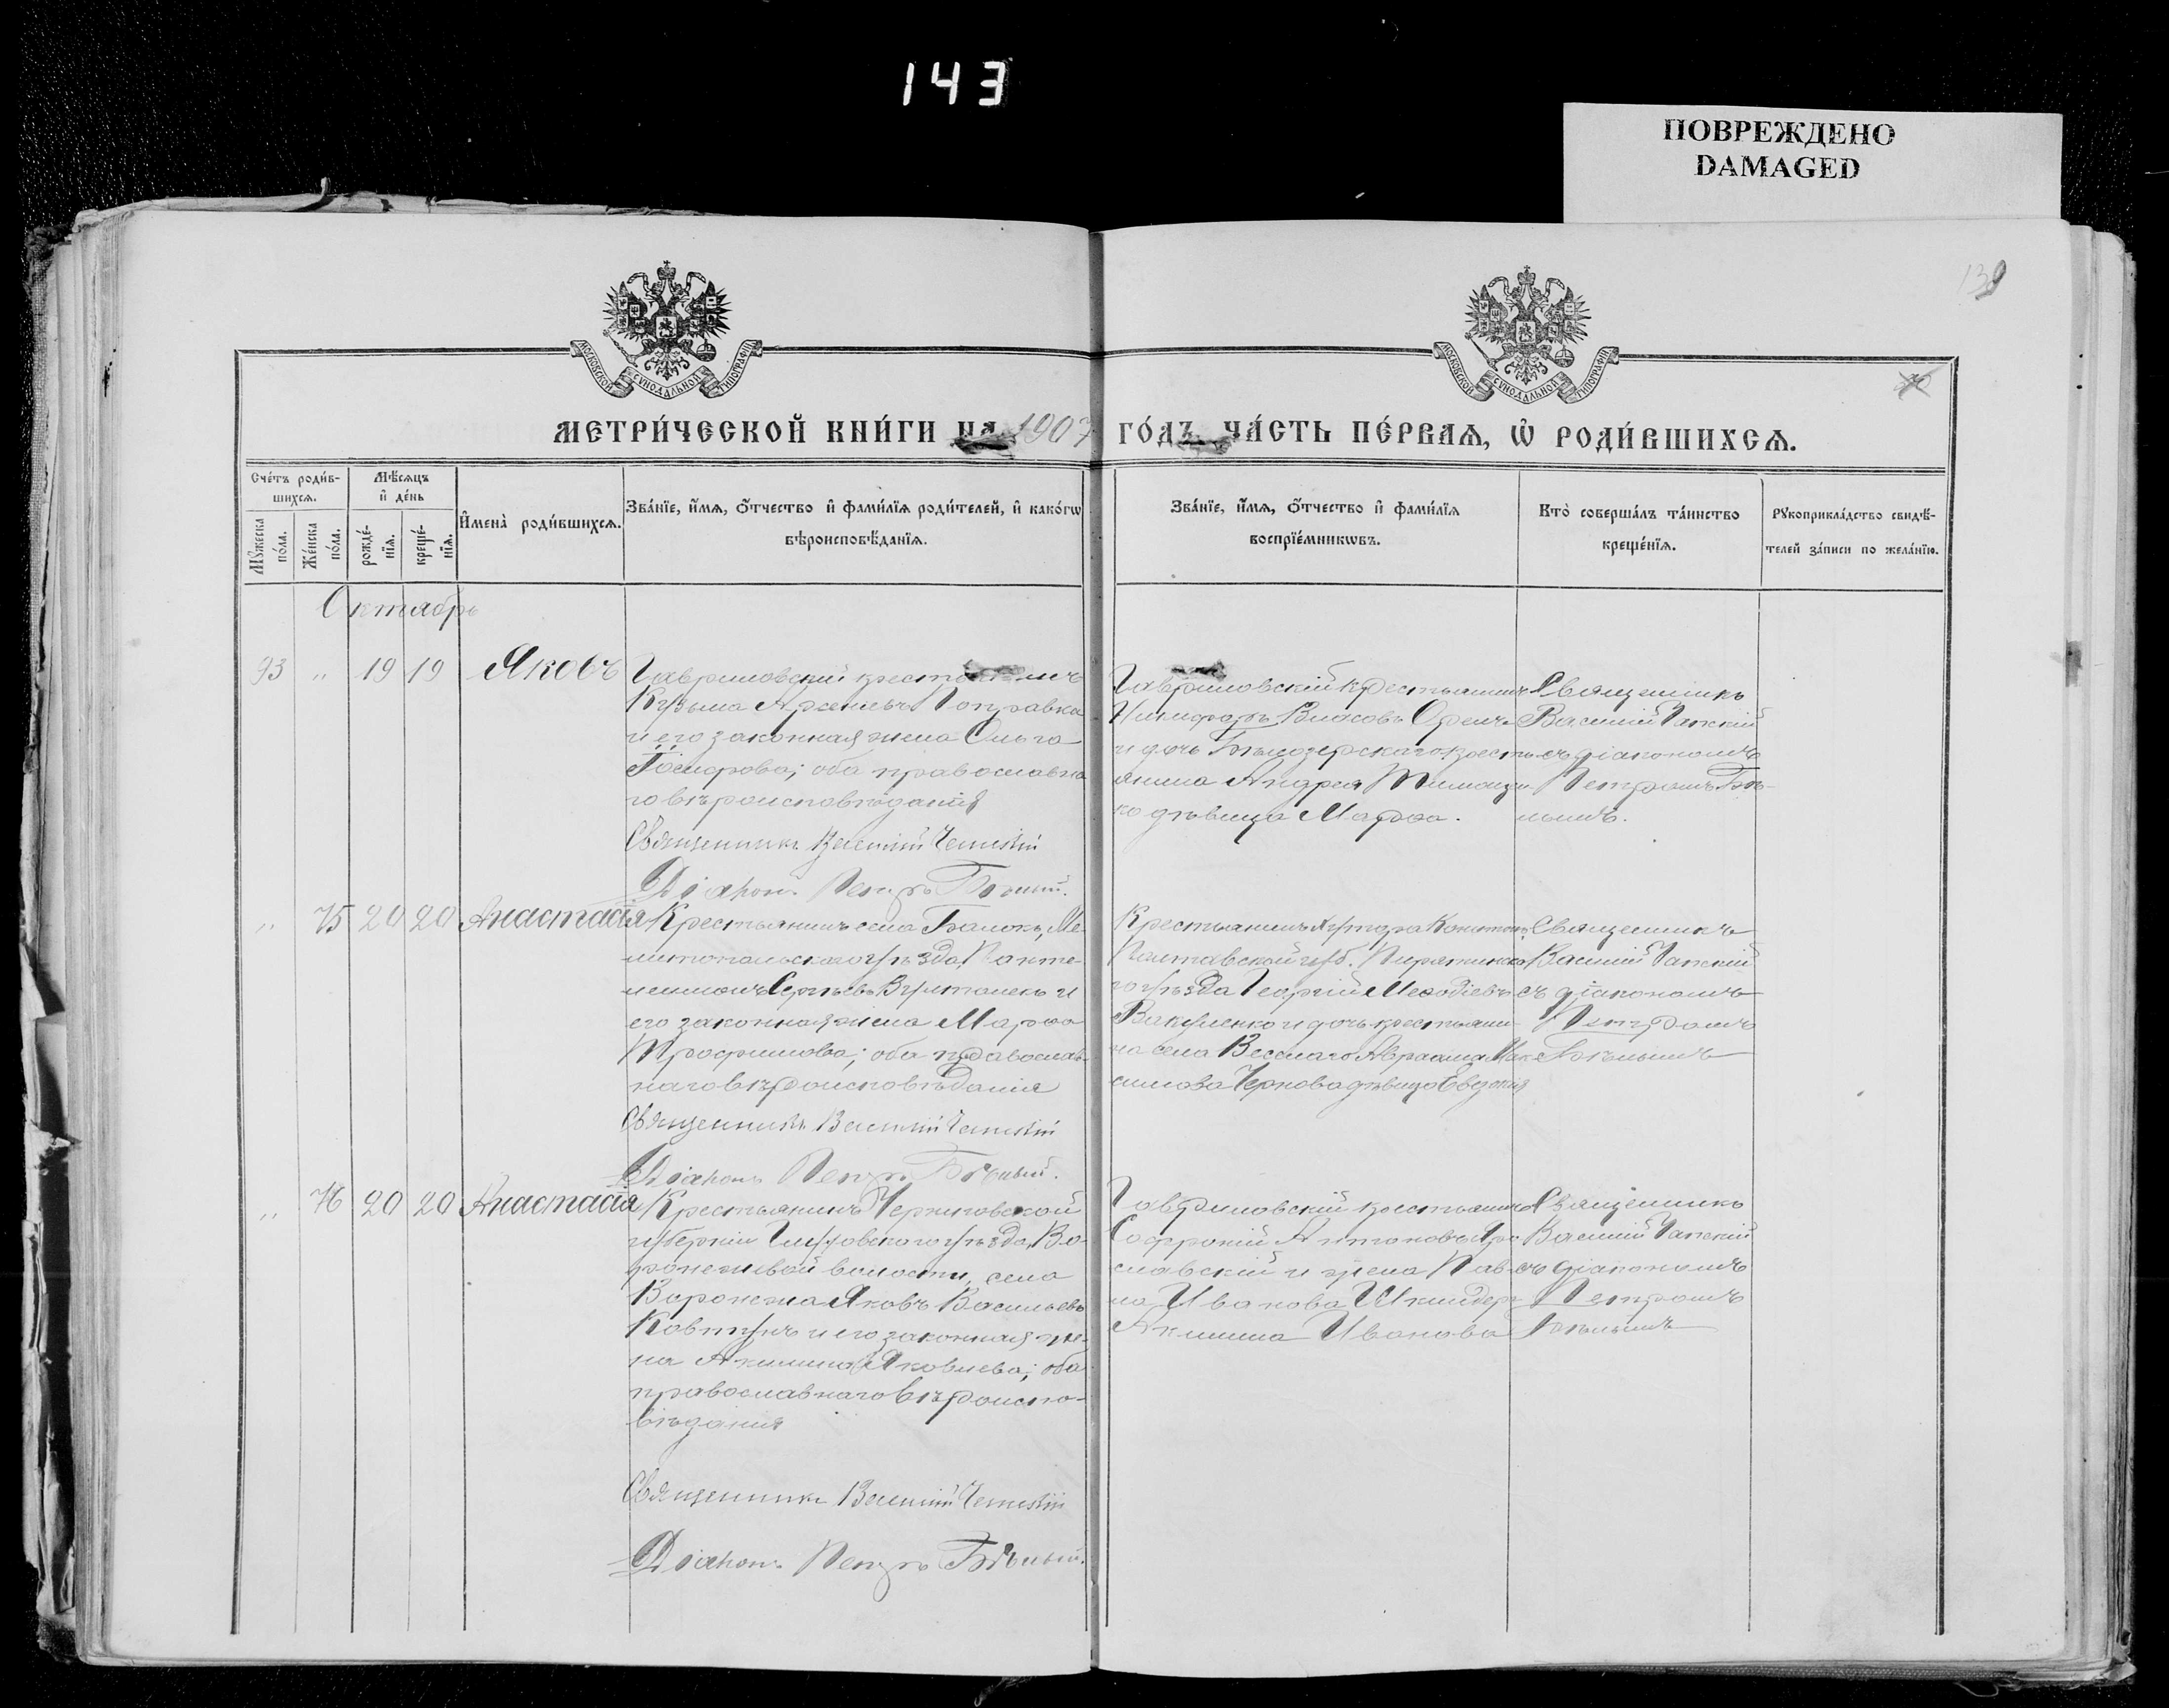 143
ПОВРЕЖДЕНО
DAMAGED
139
МОСКОВСКОЙ СУНОДАЛЬНОЙ ТИПОГРАФІИ
МОСКОВСКОЙ СУНОДАЛЬНОЙ ТИПОГРАФІИ
МЕТРИ́ЧЕСКОЙ КНИ́ГИ НА 1907 ГО́ДЪ, ЧА́СТЬ ПЕ́РВАЯ, Ѡ҆ РОДИ́ВШИХСЯ.
Сче́тъ роди́в-
шихся.
Мꙋжеска
по́ла.
Же́нска
по́ла.
Мѣ́сяцъ
и҆ де́нь
рожде́-
нїя.
креще́-
нїя.
И҆мена̀ роди́вшихся.
Зва́нїе, и҆́мя, ѻ҆́тчество и҆ фами́лїя роди́телей, и҆ како́гѡ
вѣроисповѣ́данїя.
Зва́нїе, и҆́мя, ѻ҆́тчество и҆ фами́лїя
воспрїе́мникѡвъ.
Кто̀ соверша́лъ та́инство
креще́нїя.
Рꙋкоприкла́дство свидѣ́-
телей за́писи по жела́нїю.
Октябрь
93 „ 19 19 Яковъ
Гавриловскій крестьянинъ
Кузьма Арсеньевъ Поправка
и его законная жена Ольга
Іосифова; оба православна
го вѣроисповѣданія
Священникъ Василій
Діаконъ Петръ Бѣлый.
Гавриловскій крестьянинъ
Никифоръ Власовъ
и дочь Бѣлозерскаго кресть
янина Андрея
ко дѣвица Марѳа.
Священникъ
Василій
съ діакономъ
Петромъ Бѣ-
лымъ.
„ 75 20 20 Анастасія
Крестьянинъ села Балокъ, Ме-
литопольскаго уѣзда, Панте-
леимонъ Сергѣевъ
его законная жена Марѳа
Трофимова; оба православ-
наго вѣроисповѣданія
Священникъ Василій
Діаконъ Петръ Бѣлый.
Крестьянинъ хутора
Полтавской губ. Пирятинска
го уѣзда Георгій Меѳодіевъ
Вакуленко и дочь крестьяни-
на села Веселаго Авраама Мак-
симова Чернова дѣвица Евдокія
Священникъ
Василій
съ діакономъ
Петромъ
Бѣлымъ
„ 76 20 20 Анастасія
Крестьянинъ Черниговской
губерніи Глуховскаго уѣзда, Во-
ронежской волости, села
Воронежа Яковъ Васильевъ
Ковтунъ и его законная же-
на Акилина Яковлева; оба
православнаго вѣроиспо-
вѣданія
Священникъ Василій
Діаконъ Петръ Бѣлый.
Гавриловскій крестьянинъ
Софроній Антоновъ Яро
славскій и жена Пав-
ла Иванова
Акилина Иванова
Священникъ
Василій
съ діакономъ
Петромъ
Бѣлымъ